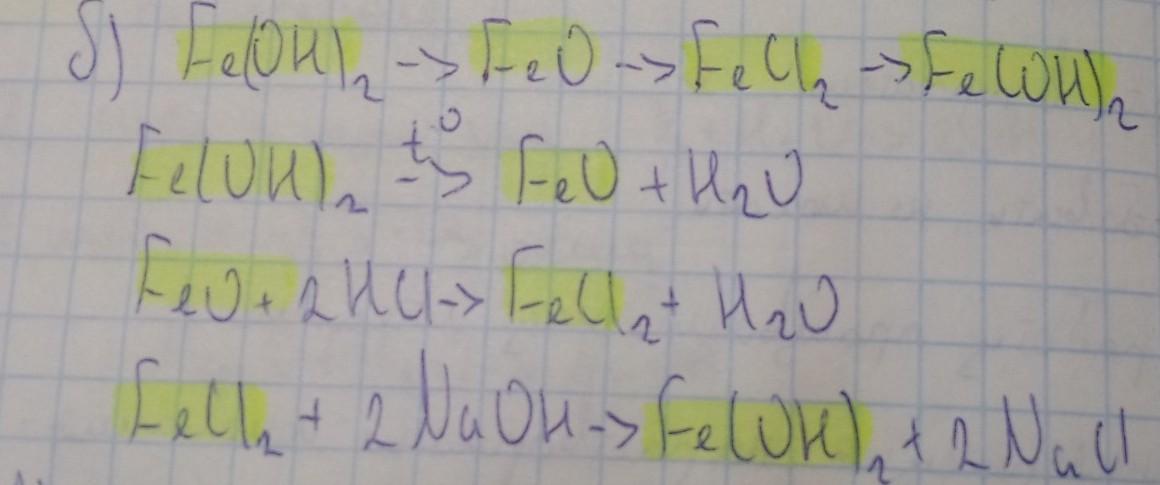 б) Fe(OH)₂ -> FeO -> FeCl₂ -> Fe(OH)₂
Fe(OH)₂ t°-> FeO + H₂O
FeO + 2HCl -> FeCl₂ + H₂O
FeCl₂ + 2NaOH -> Fe(OH)₂ + 2NaCl